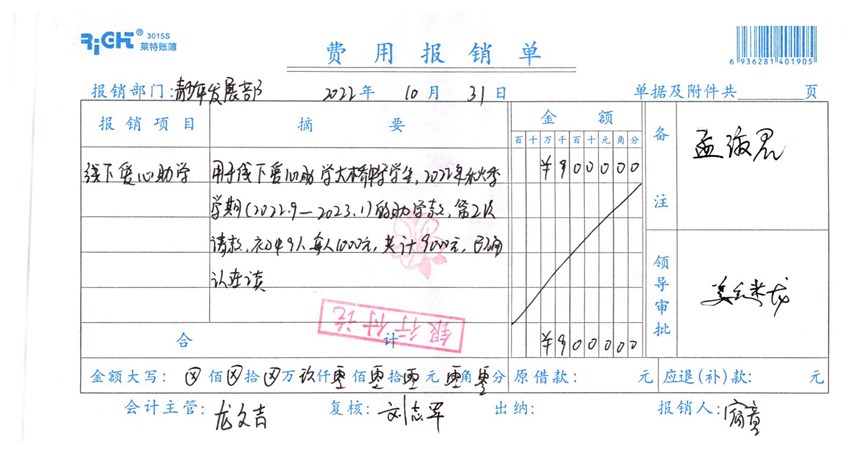 RiGHT® 3015S
莱特账簿
费用报销单
6 936281 401905
报销部门:青年发展部 2022年 10月 31日 单据及附件共 页
报销项目 摘要 金额 备注
百十万千百十元角分
线下爱心助学 用于线下爱心助学大桥中学学生,2022年秋季 ¥900000
学期(2022.9—2023.1)的助学款,第2次
请款,初中9人每人1000元,共计9000元,已确
认在读
领导审批
银行付讫
合计 ¥900000
金额大写: 佰 拾 万玖仟零佰零拾零元零角零分 原借款: 元 应退(补)款: 元
会计主管:龙文吉 复核:刘志军 出纳: 报销人: